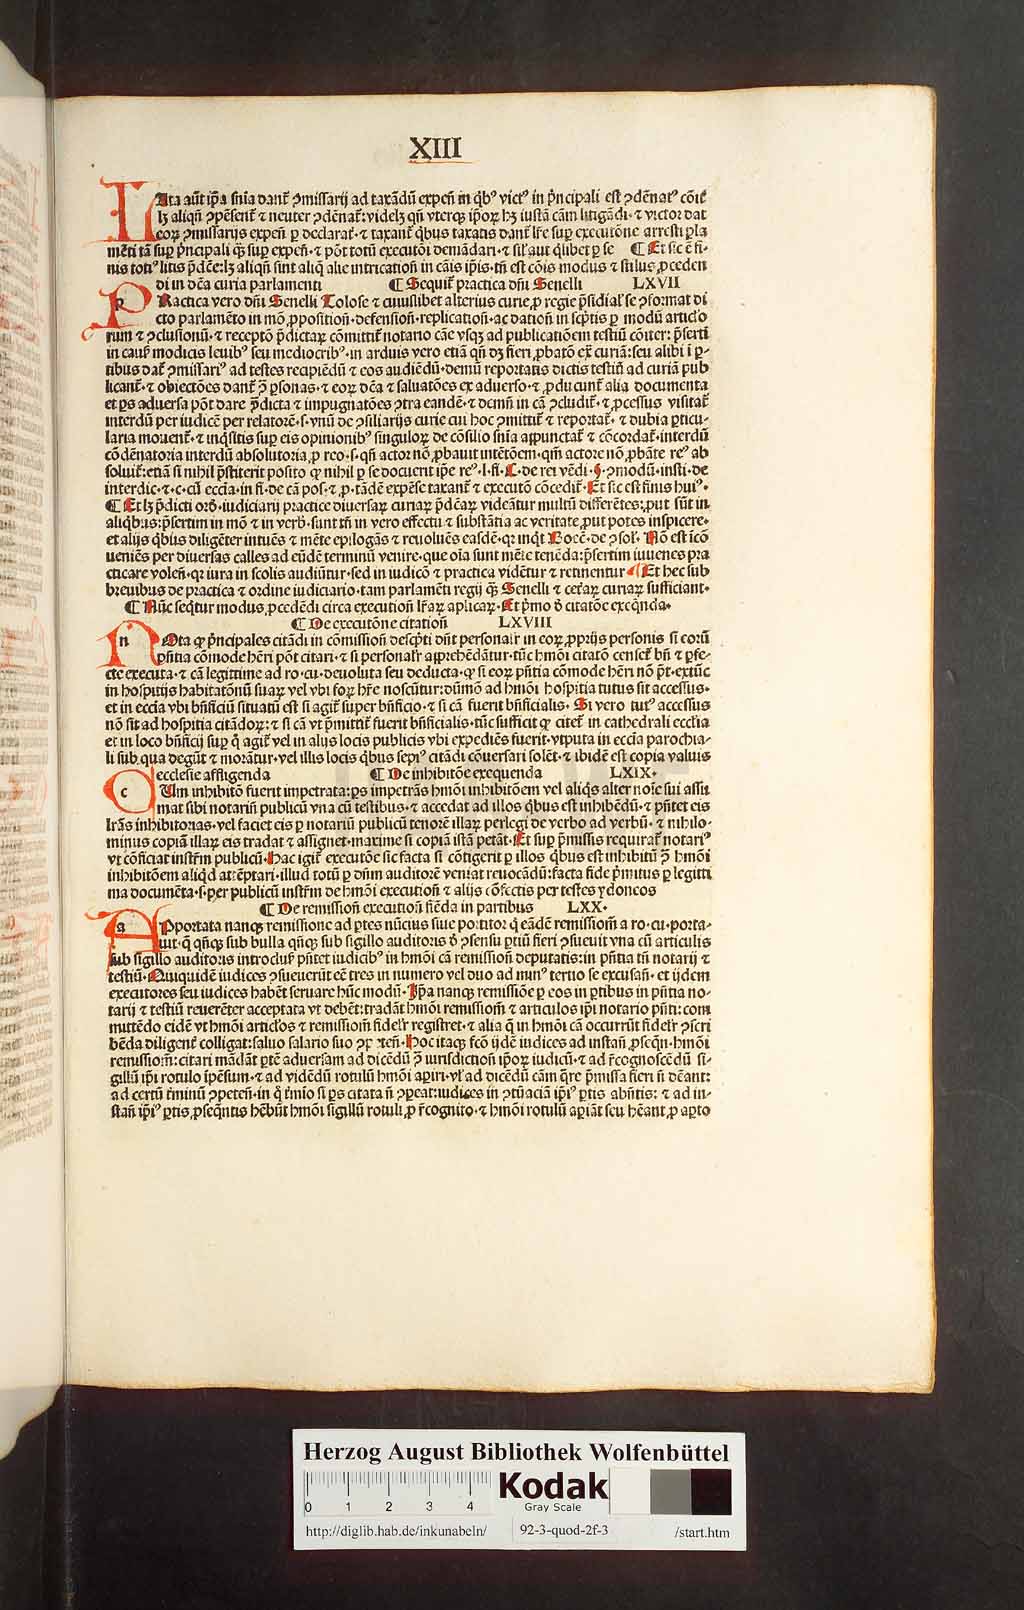 XIII
Ata aūt ip̄a snīa dant᷑ ꝯmissarij ad taxādū expeñ in q̄bꝰ victꝰ in p̄ncipali est ꝯdēnatꝰ cōit᷑
lꝫ aliqñ ꝯpēsent᷑ ⁊ neuter ꝯdēnat᷑: videlꝫ qñ vterqꝫ ip̄oꝝ hꝫ iustā cām litigādi· ⁊ victor dat
eoꝝ ꝯmissarijs expeñ ꝑ declarat᷑· ⁊ taxant᷑ q̄bus taxatis dant᷑ lr̄e suꝑ executōne arresti ꝑla
mēti tā suꝑ p̄ncipali qꝫ suꝑ expeñ· ⁊ pōt totū executōi demādari· ⁊ sil̄ aut q̄libet ꝑ se ¶ Et sic ē fi·
nis totiꝰ litis p̄dēe: lꝫ aliqñ sint aliq̄ alie intricatioñ in cāis ip̄is· tñ est cōis modus ⁊ stilus ꝓceden
di in dēa curia parlamenti ¶ Sequit᷑ practica dñi Senelli LXVII
Ractica vero dñi Senelli Tolose ⁊ cuiuslibet alterius curie ꝓ regie p̄sidial̓ se ꝯformat di
cto parlamēto in mō ꝓpositioñ· defensioñ· replicatioñ· ac datioñ in sc̄ptis ꝑ modū articl̓o
rum ⁊ ꝯclusionū· ⁊ receptō p̄dictaꝝ cōmittit᷑ notario cāe vsqꝫ ad publicatiōem testiū cōiter: p̄serti
in causꝭ modicis leuibꝰ seu mediocribꝰ· in arduis vero etiā qñ dꝫ fieri ꝓbatō ex̄ curiā: seu alibi ī ꝑ-
tibus dat᷑ ꝯmissariꝰ ad testes recipiēdū ⁊ eos audiēdū· demū reportatis dictis testiū ad curiā pub
licant᷑· ⁊ obiectōes dant᷑ ꝯ̄ ꝑsonas· ⁊ eoꝝ dēa ⁊ saluatōes ex aduerso· ⁊ ꝓducunt᷑ alia documenta
et ꝑs aduersa pōt dare ꝯ̄ dicta ⁊ impugnatōes ꝯtra eandē· ⁊ demū in cā ꝯcludit᷑· ⁊ ꝓcessus visitat᷑
interdū per iudicē per relatorē· s· vnū de ꝯsiliarijs curie cui hoc ꝯmittit᷑ ⁊ reportat᷑· ⁊ dubia ꝑticu-
laria mouent᷑· ⁊ inq̄sitis suꝑ eis opinionibꝰ singuloꝝ de cōsilio snīa apunctat᷑ ⁊ cōcordat᷑· interdū
cōdēnatoria interdū absolutoria ꝓ reo· s· qñ actor nō ꝓbauit intētōem· qm̄ actore nō ꝓbāte reꝰ ab
soluit᷑: etiā si nihil p̄stiterit posito ꝙ nihil ꝑ se docuerit ip̄e reꝰ· l· fi· C· de rei vēdi· §· ꝯmodū· insti· de
interdic· ⁊ c· cū eccīa· in fi· de cā pos· ⁊ ꝓ· tādē expēse taxant᷑ ⁊ executō cōcedit᷑· Et sic est finis huiꝰ·
¶ Et lꝫ p̄dicti ord̓· iudiciarij practice diuersaꝝ curiaꝝ p̄dēaꝝ videātur multū differētes: put sūt in
aliq̄bus: p̄sertim in mō ⁊ in verb̓· sunt tñ in vero effectu ⁊ substātia ac veritate ꝓut potes inspicere·
et alijs q̄bus diligēter intuēs ⁊ mēte epilogās ⁊ reuoluēs easdē· qꝛ inqt Boec̄· de ꝯsol· Nō est icō
ueniēs per diuersas calles ad eūdē terminū venire· que oīa sunt mēte tenēda: p̄sertim iuuenes pra
cticare voleñ· qꝛ iura in scolis audiūtur· sed in iudicō ⁊ practica vidētur ⁊ retinentur ¶ Et hec sub
breuibus de practica ⁊ ordine iudiciario· tam parlamēti regij qꝫ Senelli ⁊ ceterꝝ curiaꝝ sufficiant·
¶ Nūc seqtur modus ꝓcedēdi circa executioñ lr̄aꝝ aplicaꝝ· Et p̄mo d̓ citatōe exeq̄nda·
¶ De executōne citatioñ LXVIII
Ota ꝙ p̄ncipales citādi in cōmissioñ descpti dñt personalr̄ in eoꝝ ꝓprijs personis si eorū
p̄sītia cōmode hēri pōt citari· ⁊ si personalr̄ apprehēdātur· tūc hmōi citatō censet᷑ bñ ⁊ ꝑfe-
cte executa· ⁊ cā legittime ad ro· cu· deuoluta seu deducta· ꝙ si eoꝝ p̄ntia cōmode hēri nō p̄t· extūc
in hospitijs habitatōnū suaꝝ vel vbi foꝝ hr̄e noscūtur: dūmō ad hmōi hospitia tutus sit accessus·
et in eccīa vbi bn̄ficiū situatū est si agit᷑ super bn̄ficio· ⁊ si cā fuerit bn̄ficialis· Si vero tutꝰ accessus
nō sit ad hospitia citādoꝝ: ⁊ si cā vt p̄mittit᷑ fuerit bn̄ficialis· tūc sufficit ꝙ citet᷑ in cathedrali eccl̄ia
et in loco bn̄ficij suꝑ q̊ agit᷑ vel in alijs locis publicis vbi expediēs fuerit· vtputa in eccīa parochia-
li sub qua degūt ⁊ morātur· vel illis locis q̄bus sepiꝰ citādi cōuersari solēt· ⁊ ibidē est copia valuis
ecclesie affligenda ¶ De inhibitōe exequenda LXIX·
Um inhibitō fuerit impetrata: ꝑs impetrās hmōi inhibitōem vel aliqs alter noīe sui assu
mat sibi notariū publicū vna cū testibus· ⁊ accedat ad illos q̄bus est inhibēdū· ⁊ p̄ntet eis
lr̄as inhibitorias· vel faciet eis ꝑ notariū publicū tenorē illaꝝ perlegi de verbo ad verbū· ⁊ nihilo-
minus copiā illaꝝ eis tradat ⁊ assignet· maxime si copiā istā petāt· Et suꝑ p̄missis requirat᷑ notariꝰ
vt cōficiat instr̄m publicū· Hac igit᷑ executōe sic facta si cōtigerit ꝑ illos q̄bus est inhibitū ꝯ̄ hmōi
inhibitōem aliqd attēptari· illud totū ꝑ dñm auditorē veniat reuocādū: facta fide p̄mitus ꝑ legitti
ma documēta· s· per publicū instr̄m de hmōi executioñ ⁊ alijs cōfectis per testes ydoneos
¶ De remissioñ executioñ fiēda in partibus LXX·
Pportata nanqꝫ remissione ad ꝑtes nūcius siue portitor q̄ eādē remissioñ a ro· cu· porta-
uit· q̄ qñqꝫ sub bulla qñqꝫ sub sigillo auditoris d̓ ꝯsensu ꝑtiū fieri ꝯsueuit vna cū articulis
sub sigillo auditoris introdusꝭ p̄ntet iudicibꝰ in hmōi cā remissioñ deputatis: in p̄ntia tñ notarij ⁊
testiū· Quiquidē iudices ꝯsueuerūt eē tres in numero vel duo ad minꝰ tertio se excusañ· et ijdem
executores seu iudices habēt seruare hūc modū· Ip̄a nanqꝫ remissiōe ꝑ eos in ꝑtibus in p̄ntia no-
tarij ⁊ testiū reuerēter acceptata vt debēt: tradāt hmōi remissioñ ⁊ articulos ip̄i notario p̄nti: com
mittēdo eidē vt hmōi articl̓os ⁊ remissioñ fidelr̄ registret· ⁊ alia q̄ in hmōi cā occurrūt fidelr̄ ꝯscri
bēda diligent᷑ colligat: saluo salario suo ꝯpeteñ· Hoc itaqꝫ fcō ijdē iudices ad instañ ꝓseqñ· hmōi
remissioñ: citari mādāt ꝑtē aduersam ad dicēdū ꝯ̄ iurisdictioñ ip̄oꝝ iudicū· ⁊ ad r̄cognoscēdū si-
gillū ip̄i rotulo īpēsum· ⁊ ad vidēdū rotulū hmōi aꝑiri· vl̓ ad dicēdū cām q̄re p̄missa fieri ñ dēant:
ad certū t̄minū ꝯpeteñ· in q̊ t̄mio si ꝑs citata ñ ꝯꝑeat: iudices in ꝯtūaciā ip̄iꝰ ꝑtis abn̄tis: ⁊ ad in-
stañ ip̄iꝰ ꝑtis ꝓseq̄ntis hēbūt hmōi sigillū rotuli ꝓ r̄cognito· ⁊ hmōi rotulū aꝑiāt seu hēant ꝓ aꝑto
Herzog August Bibliothek Wolfenbüttel
0 1 2 3 4
Kodak
Gray Scale
http://diglib.hab.de/inkunabeln/ 92-3-quod-2f-3 /start.htm